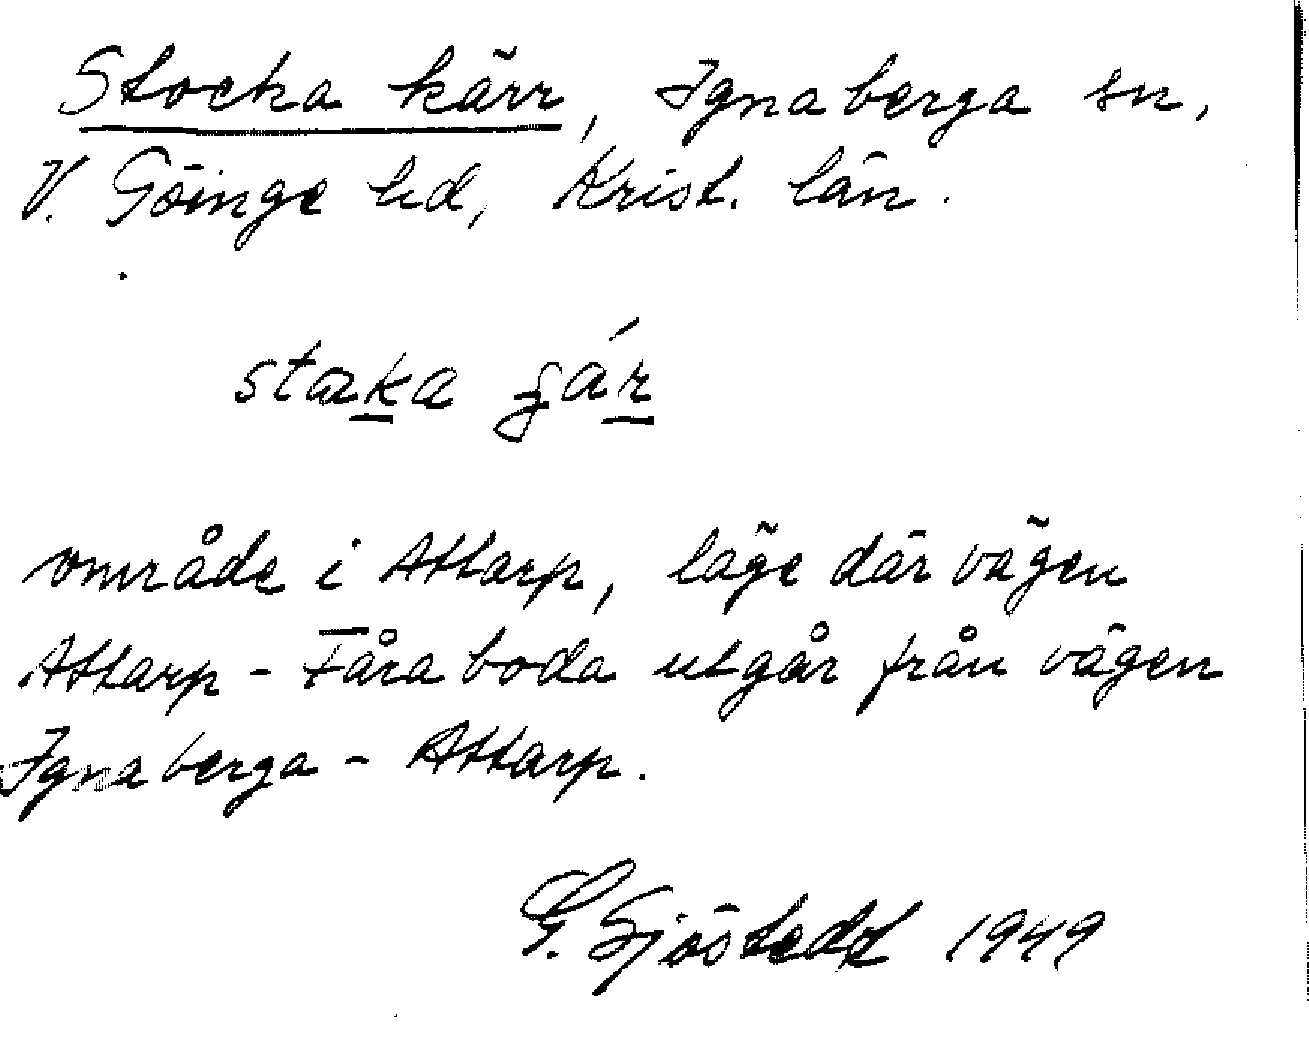 Stocka kärr, Ignaberga sn,
V. Göinge hd, Krist. län.
staka
område i Attarp, läge där vägen
Attarp - Tåraboda utgår från vägen
Ignaberga - Attarp.
G. Sjöstedt 1949